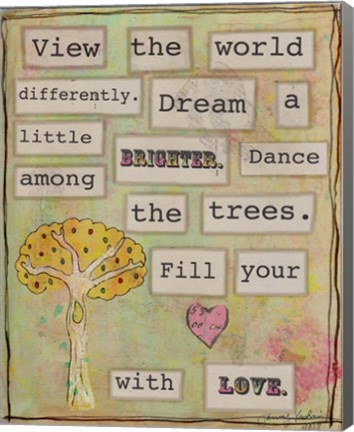 View the world
differently. Dream a
little BRIGHTER. Dance
among the trees.
Fill your
with LOVE.